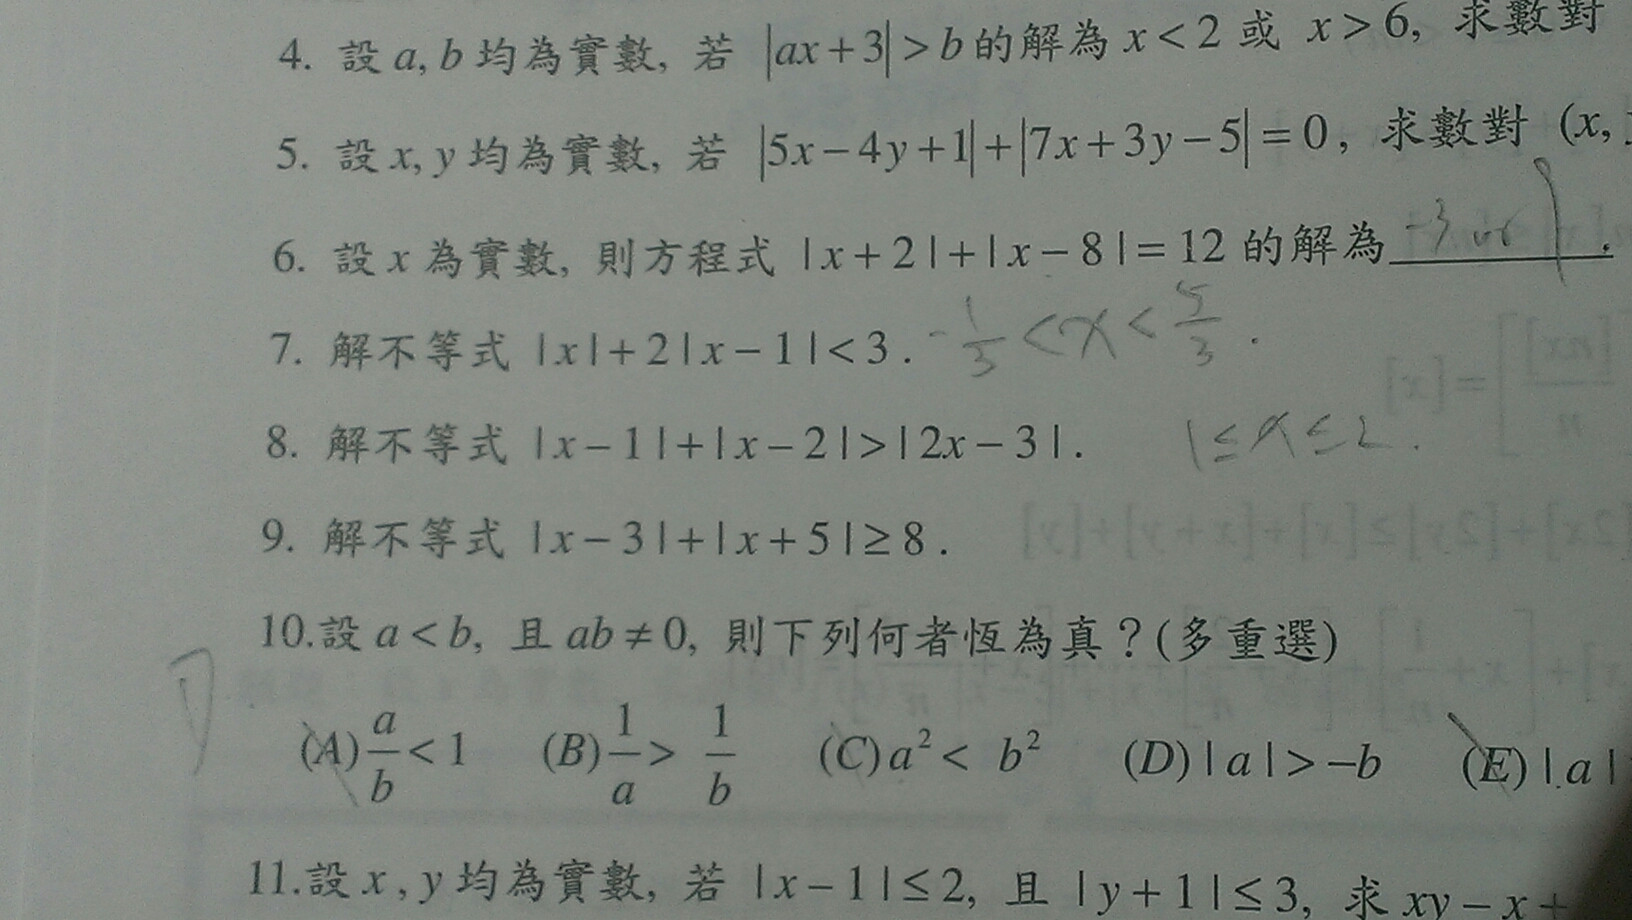 4. 設 a, b 均為實數, 若 |ax+3|>b 的解為 x<2 或 x>6, 求數對
5. 設 x, y 均為實數, 若 |5x-4y+1|+|7x+3y-5|=0, 求數對 (x,
6. 設 x 為實數, 則方程式 |x+2|+|x-8|=12 的解為
7. 解不等式 |x|+2|x-1|<3. -1/3<x<5/3.
8. 解不等式 |x-1|+|x-2|>|2x-3|. 1≤x≤2.
9. 解不等式 |x-3|+|x+5|≥8.
10.設 a<b, 且 ab≠0, 則下列何者恆為真？(多重選)
D (A) a/b<1 (B) 1/a > 1/b (C) a²< b² (D) |a|>-b (E) |a|
11.設 x, y 均為實數, 若 |x-1|≤2, 且 |y+1|≤3, 求 xy-x+